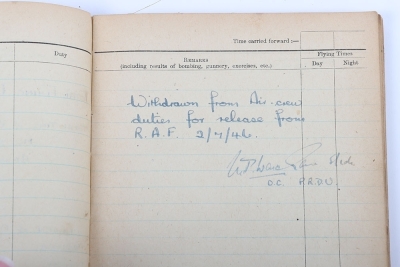 Time carried forward :—
Duty
Remarks
(including results of bombing, gunnery, exercises, etc.)
Flying Times
Day
Night
Withdrawn from Air-crew
duties for release from
R.A.F. 2/7/46.
O.C.